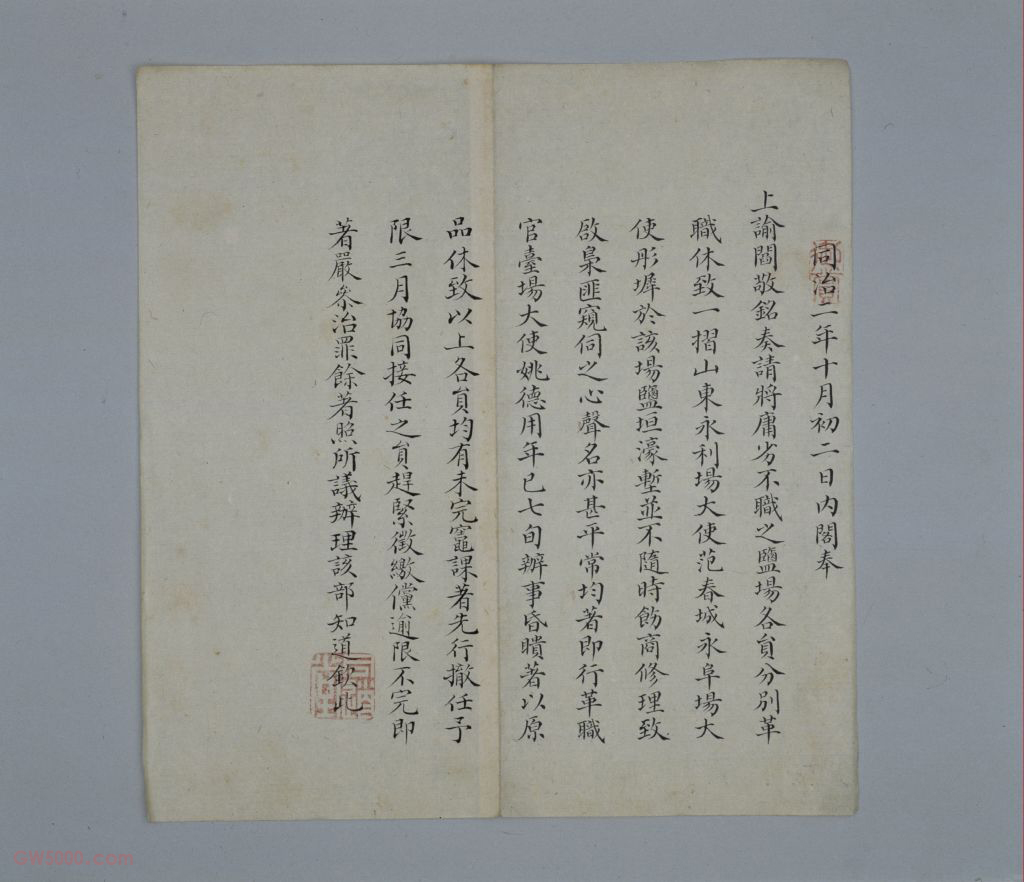 同治二年十月初二日内閣奉
上諭閻敬銘奏請將庸劣不職之鹽場各員分別革
職休致一摺山東永利場大使范春城永阜場大
使彤墀於該場鹽垣濠塹並不隨時飭商修理致
啟梟匪窺伺之心聲名亦甚平常均著即行革職
官臺場大使姚德用年已七旬辦事昏瞶著以原
品休致以上各員均有未完竈課著先行撤任予
限三月協同接任之員趕緊徵繳儻逾限不完即
著嚴叅治罪餘著照所議辦理該部知道欽此